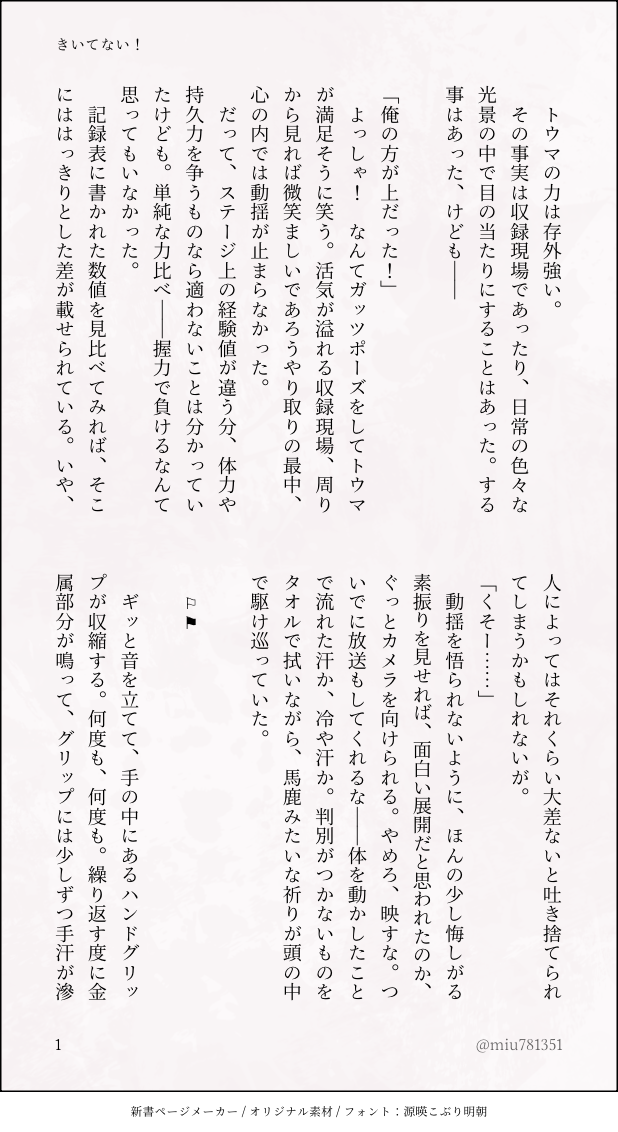 きいてない！
トウマの力は存外強い。
その事実は収録現場であったり、日常の色々な
光景の中で目の当たりにすることはあった。する
事はあった、けども――
「俺の方が上だった！」
よっしゃ！　なんてガッツポーズをしてトウマ
が満足そうに笑う。活気が溢れる収録現場、周り
から見れば微笑ましいであろうやり取りの最中、
心の内では動揺が止まらなかった。
だって、ステージ上の経験値が違う分、体力や
持久力を争うものなら適わないことは分かってい
たけども。単純な力比べ――握力で負けるなんて
思ってもいなかった。
記録表に書かれた数値を見比べてみれば、そこ
にははっきりとした差が載せられている。いや、
人によってはそれくらい大差ないと吐き捨てられ
てしまうかもしれないが。
「くそー……」
動揺を悟られないように、ほんの少し悔しがる
素振りを見せれば、面白い展開だと思われたのか、
ぐっとカメラを向けられる。やめろ、映すな。つ
いでに放送もしてくれるな――体を動かしたこと
で流れた汗か、冷や汗か。判別がつかないものを
タオルで拭いながら、馬鹿みたいな祈りが頭の中
で駆け巡っていた。
⚐⚑
ギッと音を立てて、手の中にあるハンドグリッ
プが収縮する。何度も、何度も。繰り返す度に金
属部分が鳴って、グリップには少しずつ手汗が滲
1
@miu781351
新書ページメーカー / オリジナル素材 / フォント：源暎こぶり明朝